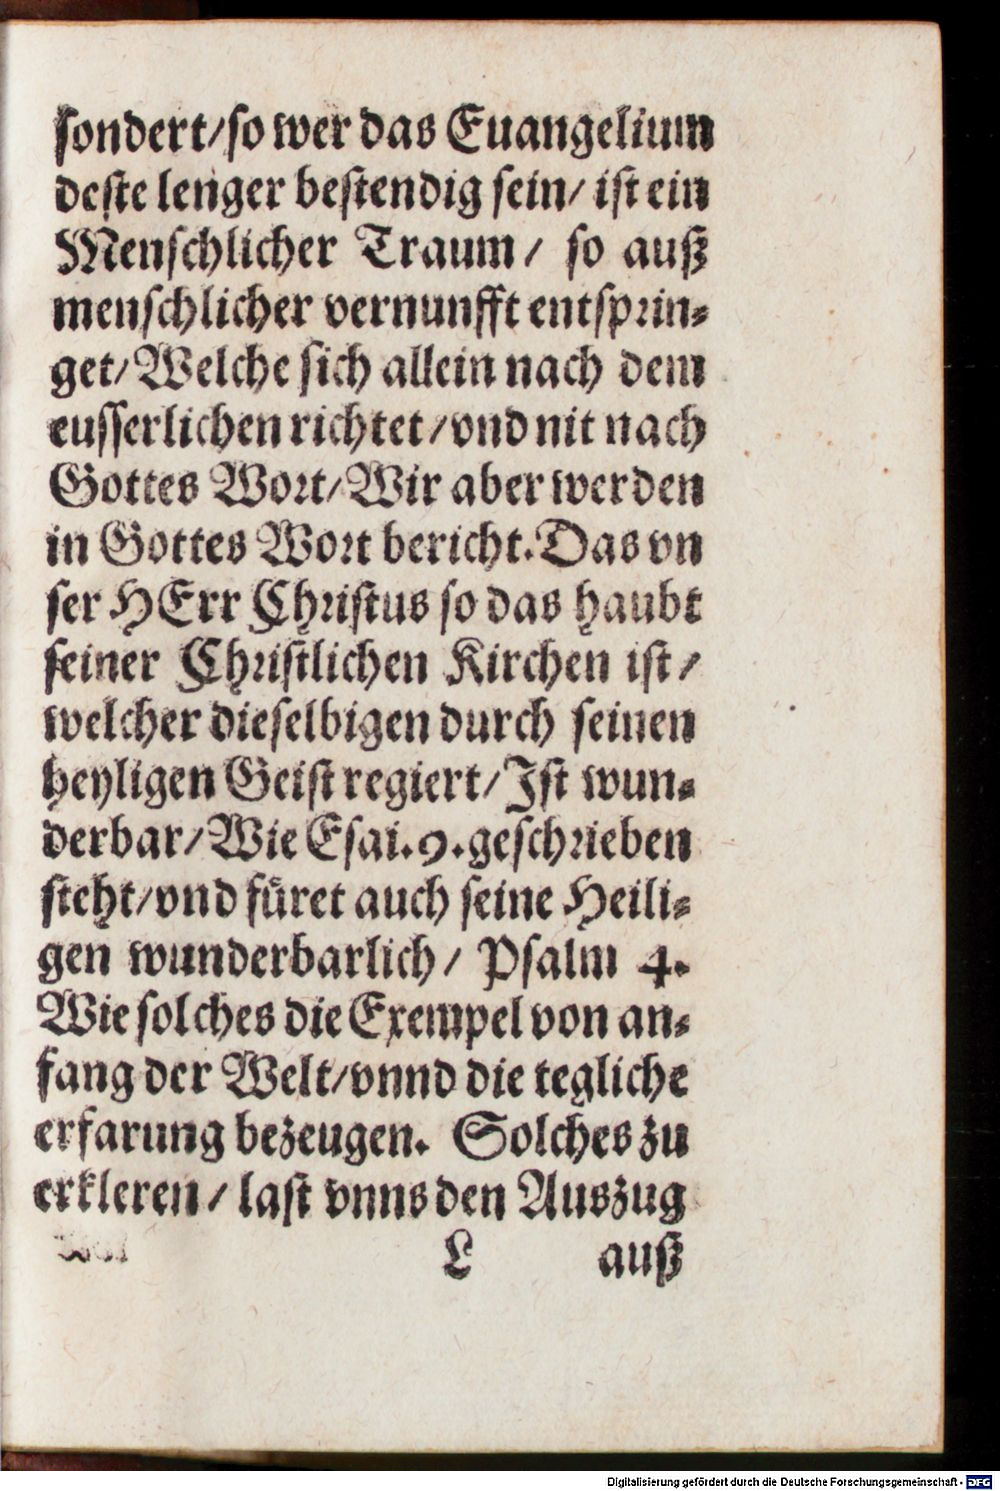 sondert/so wer das Euangelium
deste lenger bestendig sein/ ist ein
Menschlicher Traum/ so auß
menschlicher vernunfft entsprin⸗
get/Welche sich allein nach dem
eusserlichen richtet/vnd nit nach
Gottes Wort/Wir aber werden
in Gottes Wort bericht. Das vn
ser HErr Christus so das haubt
seiner Christlichen Kirchen ist/
welcher dieselbigen durch seinen
heyligen Geist regiert/Ist wun⸗
derbar/Wie Esai. 9. geschrieben
steht/vnd füret auch seine Heili⸗
gen wunderbarlich/ Psalm 4.
Wie solches die Exempel von an⸗
fang der Welt/vnnd die tegliche
erfarung bezeugen. Solches zu
erkleren/ last vnns den Auszug
L auß
Digitalisierung gefördert durch die Deutsche Forschungsgemeinschaft - DFG